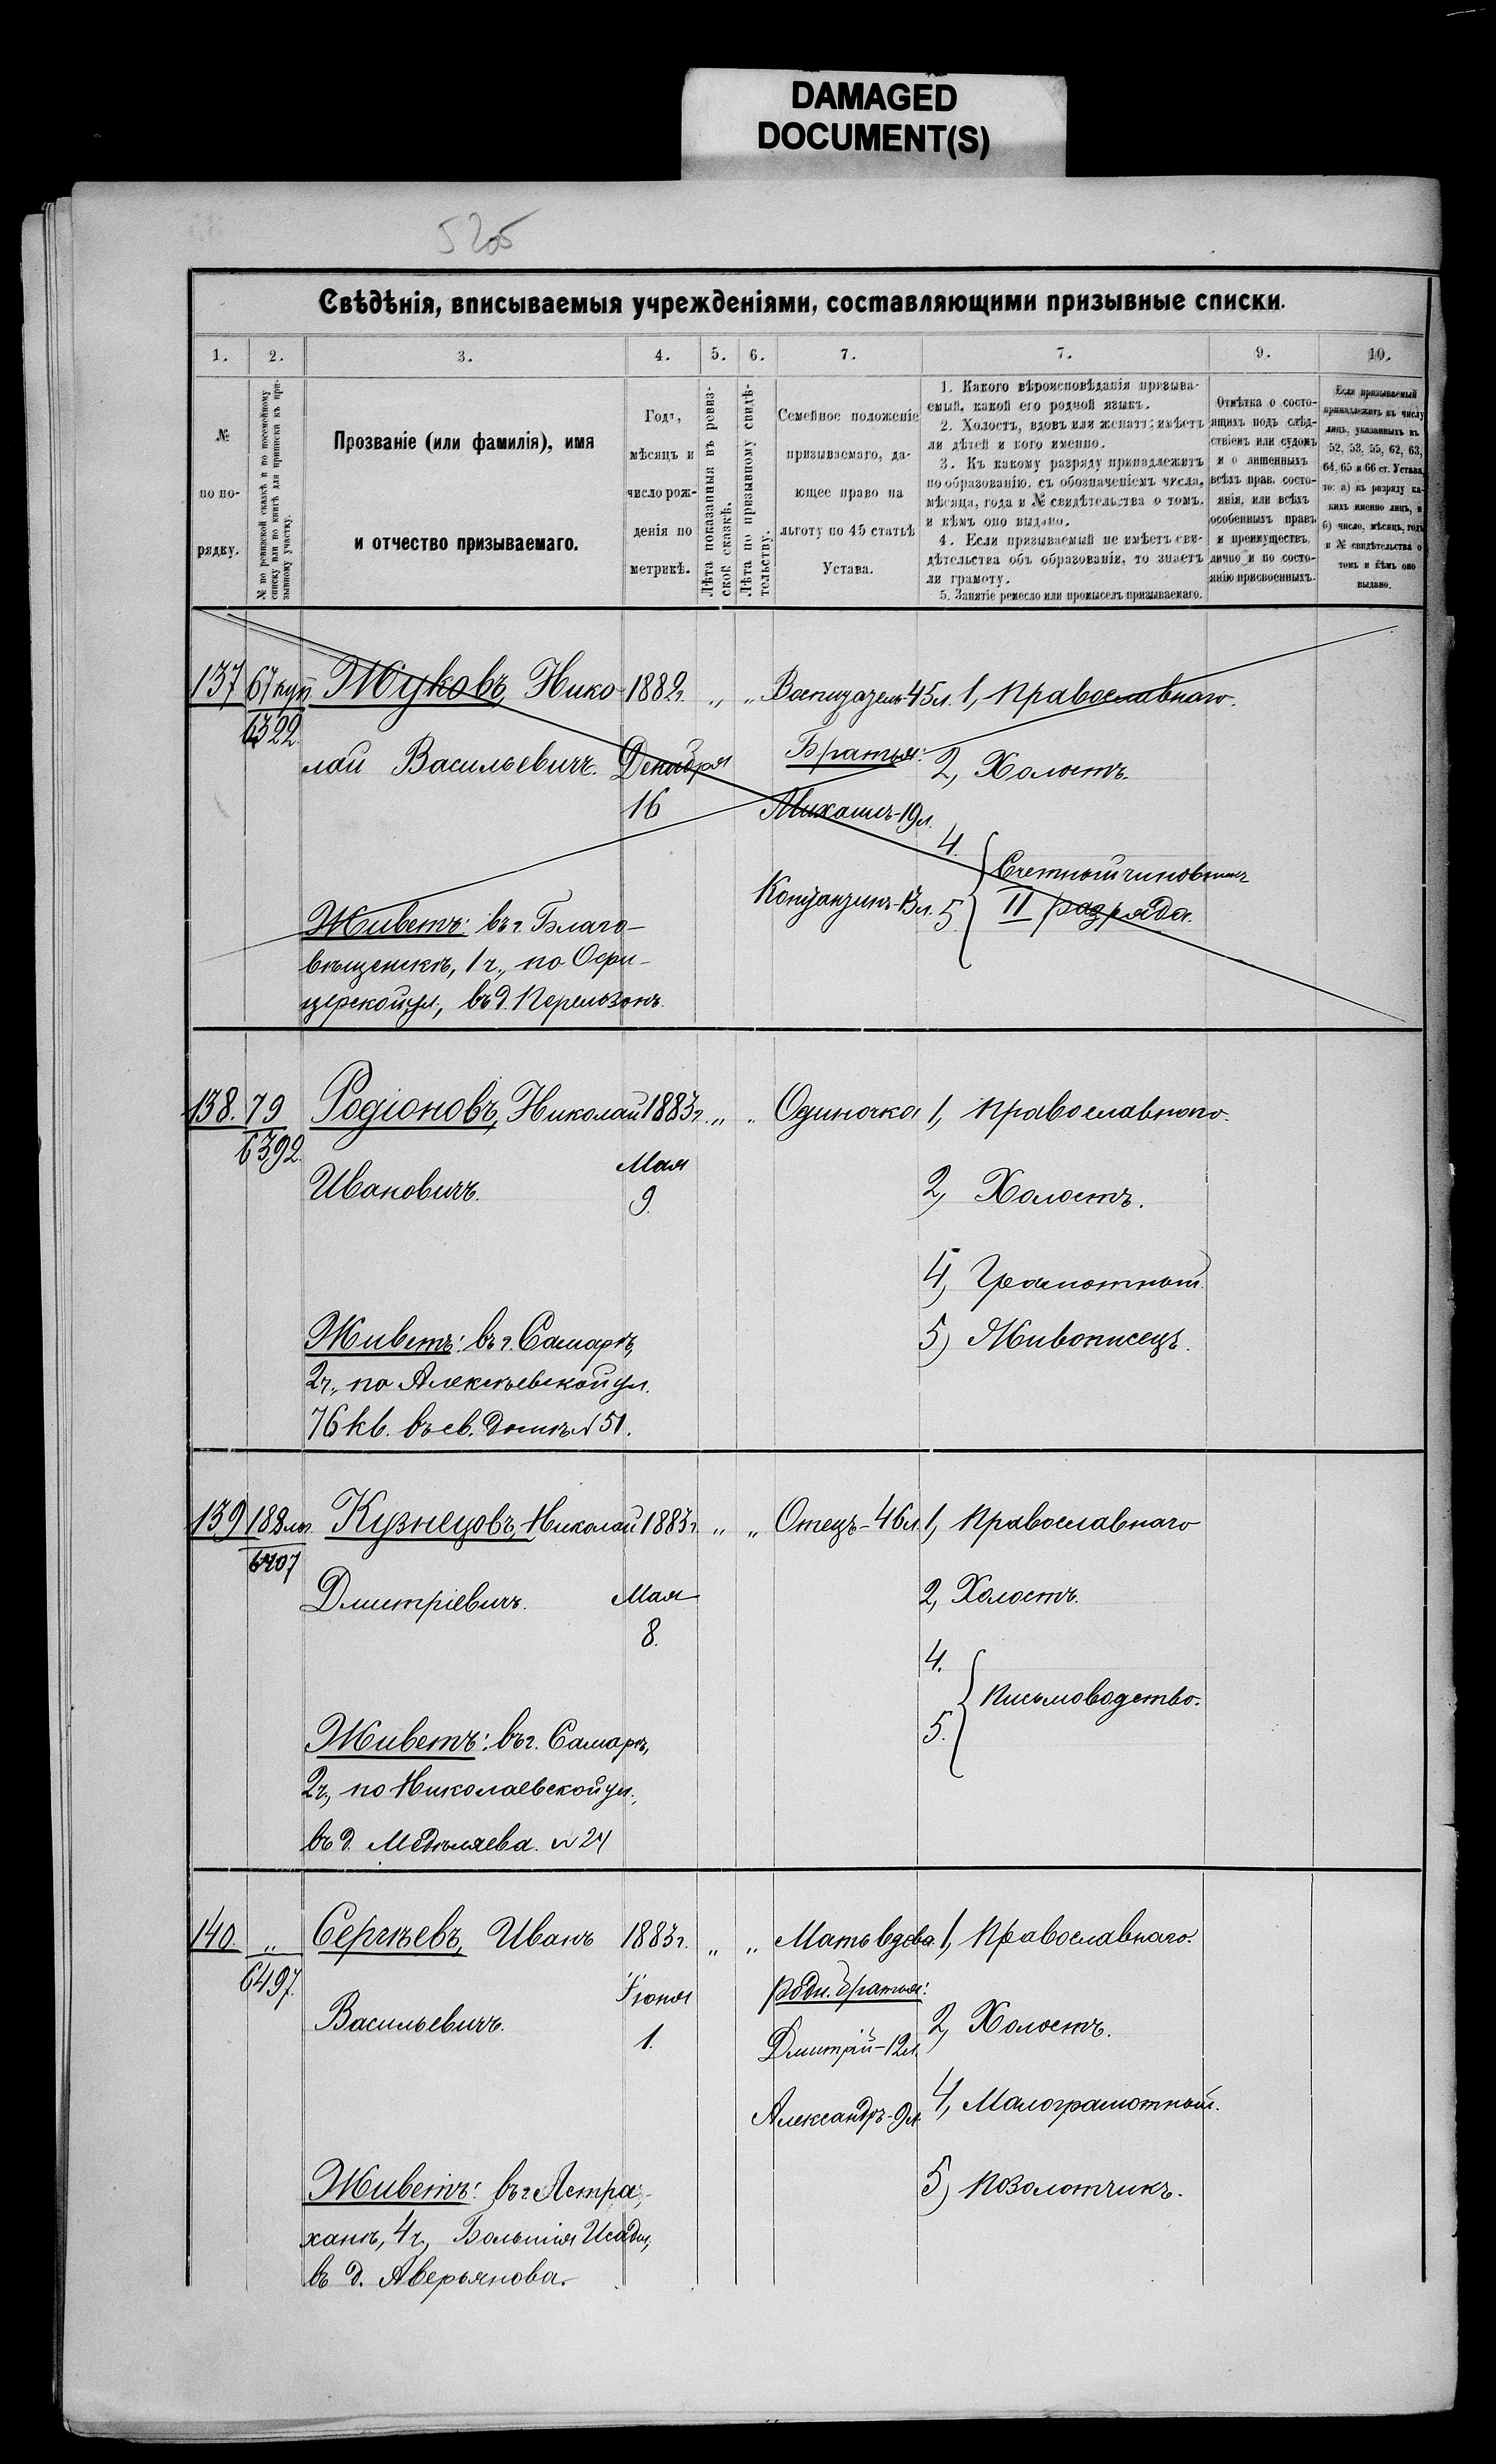 DAMAGED
DOCUMENT(S)
5205
Свѣдѣнія, вписываемыя учрежденіями, составляющими призывные списки.
1. 2. 3. 4. 5. 6. 7. 7. 9. 10.
№
по по-
рядку.
№ по ревизской сказкѣ и по посемейному
списку или по книгѣ для приписки къ при-
зывному участку.
Прозваніе (или фамилія), имя
и отчество призываемаго.
Годъ,
мѣсяцъ и
число рож-
денія по
метрикѣ.
Лѣта показанныя въ ревиз-
ской сказкѣ.
Лѣта по призывному свидѣ-
тельству.
Семейное положеніе
призываемаго, да-
ющее право на
льготу по 45 статьѣ
Устава.
1. Какого вѣроисповѣданія призыва-
емый, какой его родной языкъ.
2. Холостъ, вдовъ или женатъ; имѣетъ
ли дѣтей и кого именно.
3. Къ какому разряду принадлежитъ
по образованію, съ обозначеніемъ числа,
мѣсяца, года и № свидѣтельства о томъ.
и кѣмъ оно выдано.
4. Если призываемый не имѣетъ сви-
дѣтельства объ образованіи, то знаетъ
ли грамоту.
5. Занятіе ремесло или промыселъ призываемаго.
Отмѣтка о состо-
ящихъ подъ слѣд-
ствіемъ или судомъ
и о лишенныхъ
всѣхъ прав. состо-
янія, или всѣхъ
особенныхъ правъ
и преимуществъ,
лично и по состо-
янію присвоенныхъ.
Если призываемый
принадлежитъ къ числу
лицъ, указанныхъ въ
52, 53, 55, 62, 63,
64, 65 и 66 ст. Устава,
то: а) къ разряду ка-
кихъ именно лицъ, и
б) число, мѣсяцъ, годъ
и № свидѣтельства о
томъ и кѣмъ оно
выдано.
137 67 куп. Жуковъ, Нико- 1882г. „ „ Воспитатель 45л. 1, Православнаго.
6322.
лай Васильевичъ. Декабря Братья: 2, Холостъ.
16 Михаилъ-19л.
4.
Счетный чиновникъ
Константинъ-13л. 5. II разряда.
Живетъ: въ г. Благо-
вѣщенскѣ, 1 ч., по Офи-
церской ул., въ д. Перельзонъ.
138. 79 Родіоновъ, Николай 1883г. „ „ Одиночка 1, Православнаго.
6392.
Ивановичъ. Мая 2, Холостъ.
9.
4, Грамотный.
Живетъ: въ г. Самарѣ, 5) Живописецъ.
2ч., по Алексѣевской ул.
76 кв. въ св. домѣ № 51.
139 188 Кузнецовъ, Николай 1883г. „ „ Отецъ-46л. 1, Православнаго
6407
Дмитріевичъ. Мая 2, Холостъ.
8.
4.
Письмоводство.
5.
Живетъ: въ г. Самарѣ,
2ч., по Николаевской ул.,
въ д. № 24
140. „ Сергѣевъ, Иванъ 1883г. „ „ Мать вдова. 1, Православнаго.
6497.
Іюня родн. братья:
Васильевичъ. 1. 2, Холостъ.
Дмитрій-12л.
Александръ-9л. 4, Малограмотный.
Живетъ: въ г. Астра- 5) Позолотчикъ.
хани, 4ч, Большія Исады,
въ д. Аверьянова.